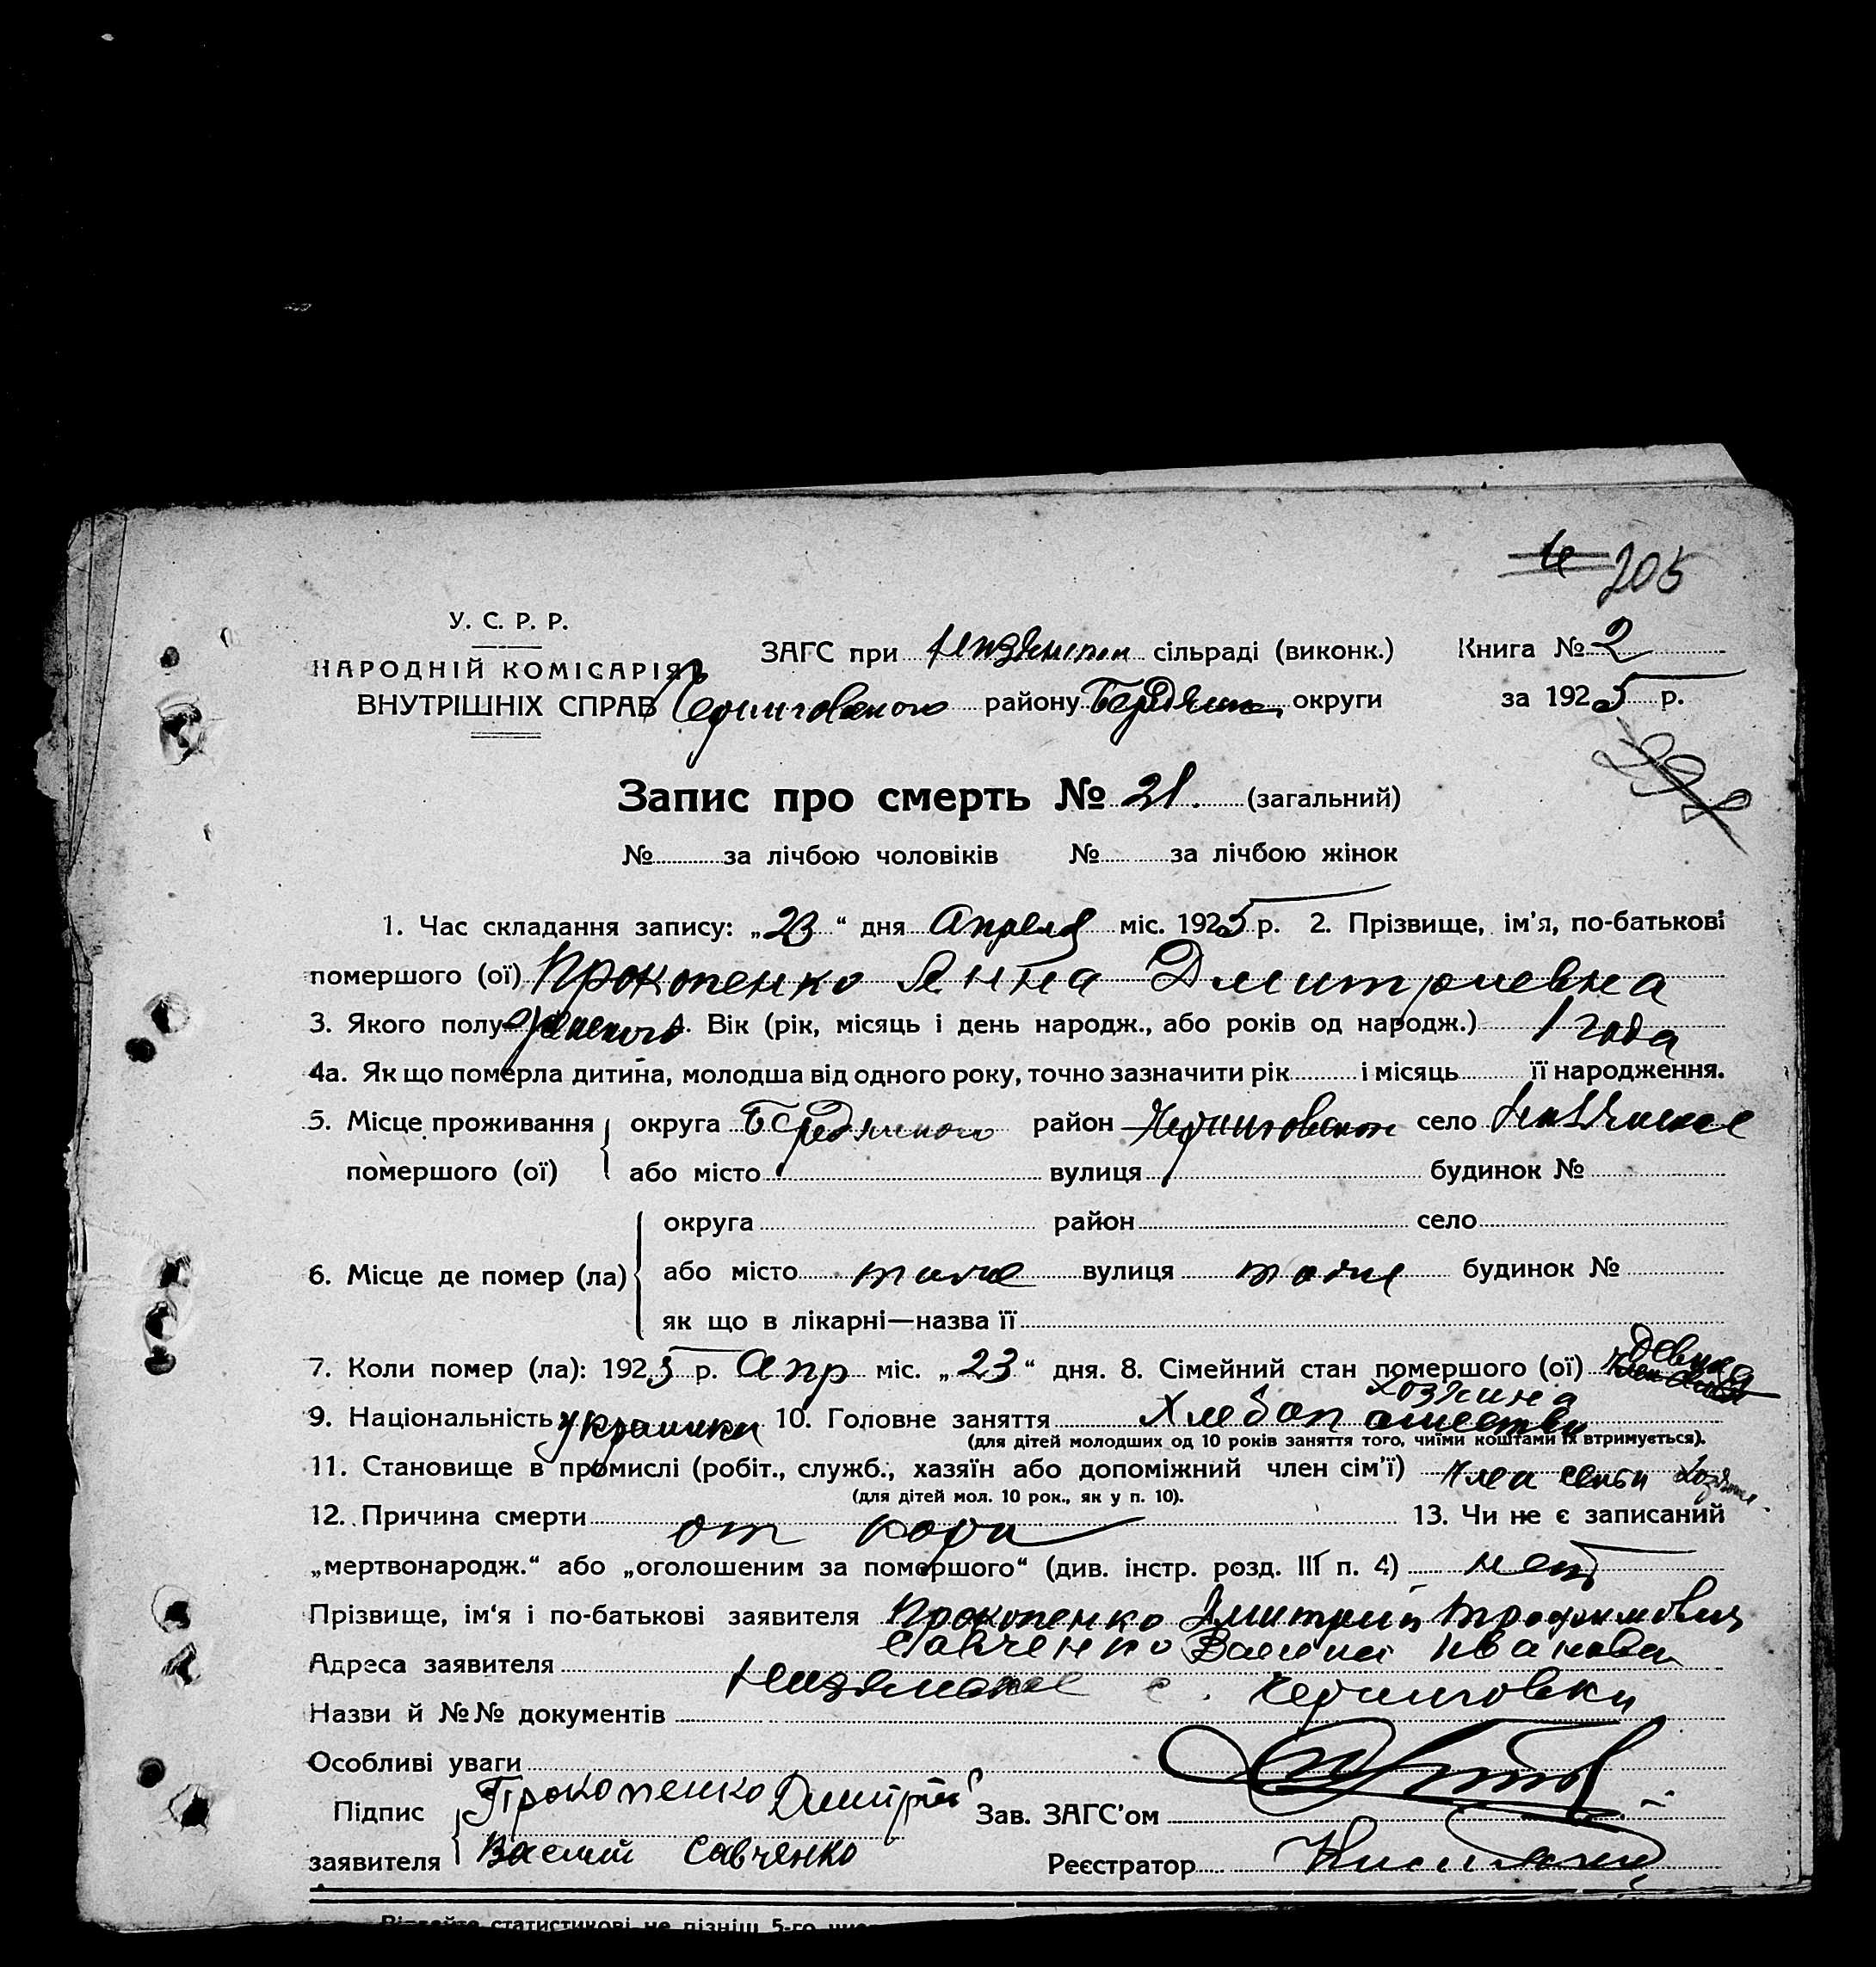 205
У. С. Р. Р.
НАРОДНІЙ КОМІСАРІЯТ
ВНУТРІШНІХ СПРАВ
ЗАГС при сільраді (виконк.) Книга № 2
Черниговского району Бердянск округи за 1925 р.
Запис про смерть № 21. (загальний)
№ за лічбою чоловіків № за лічбою жінок
1. Час складання запису: „23“ дня Апреля міс. 1925 р. 2. Прізвище, ім'я, по-батькові
помершого (ої) Прокопенко Анна Дмитриевна
3. Якого полу женского 4. Вік (рік, місяць і день народж., або років од народж.) 1 года
4а. Як що померла дитина, молодша від одного року, точно зазначити рік і місяць її народження.
5. Місце проживання округа Бердянского район Черниговского село
помершого (ої) або місто вулиця будинок №
округа район село
6. Місце де помер (ла) або місто тоже вулиця тоже будинок №
як що в лікарні—назва її
7. Коли помер (ла): 1925 р. Апр міс. „23“ дня. 8. Сімейний стан помершого (ої) девица
хозяина
9. Національність 10. Головне заняття Хлебопашество
(для дітей молодших од 10 років заняття того, чиїми коштами їх втримується).
11. Становище в промислі (робіт., служб., хазяїн або допоміжний член сім'ї) член семьи
(для дітей мол. 10 рок., як у п. 10).
12. Причина смерти от кори 13. Чи не є записаний
„мертвонародж.“ або „оголошеним за помершого“ (див. інстр. розд. III п. 4) нет
Прізвище, ім‘я і по-батькові заявителя Прокопенко Дмитрий Трофимович
Савченко Василий Иванови
Адреса заявителя с. Черниговки
Назви й №№ документів
Особливі уваги
Підпис Прокопенко Дмитрий Зав. ЗАГС'ом
заявителя Василий Савченко Реєстратор
статистикові не пізніш 5-го